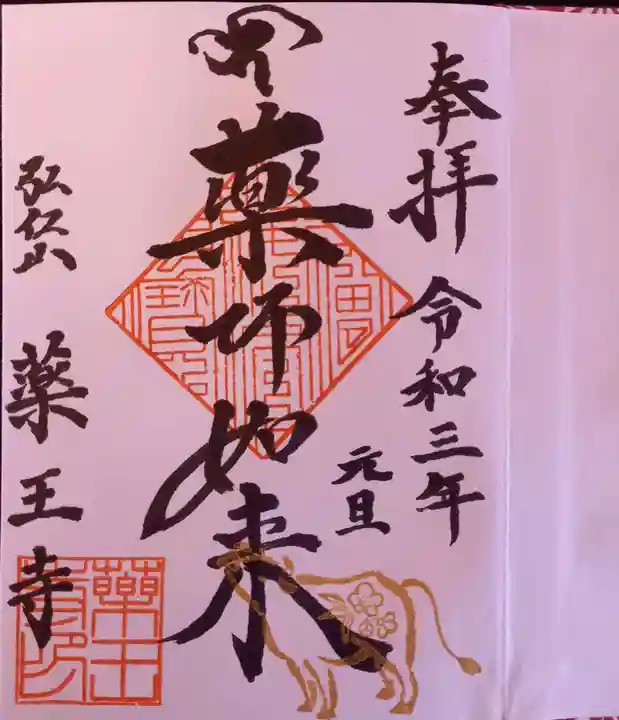 奉拝 令和三年
元旦
薬師如来
弘仁山 薬王寺